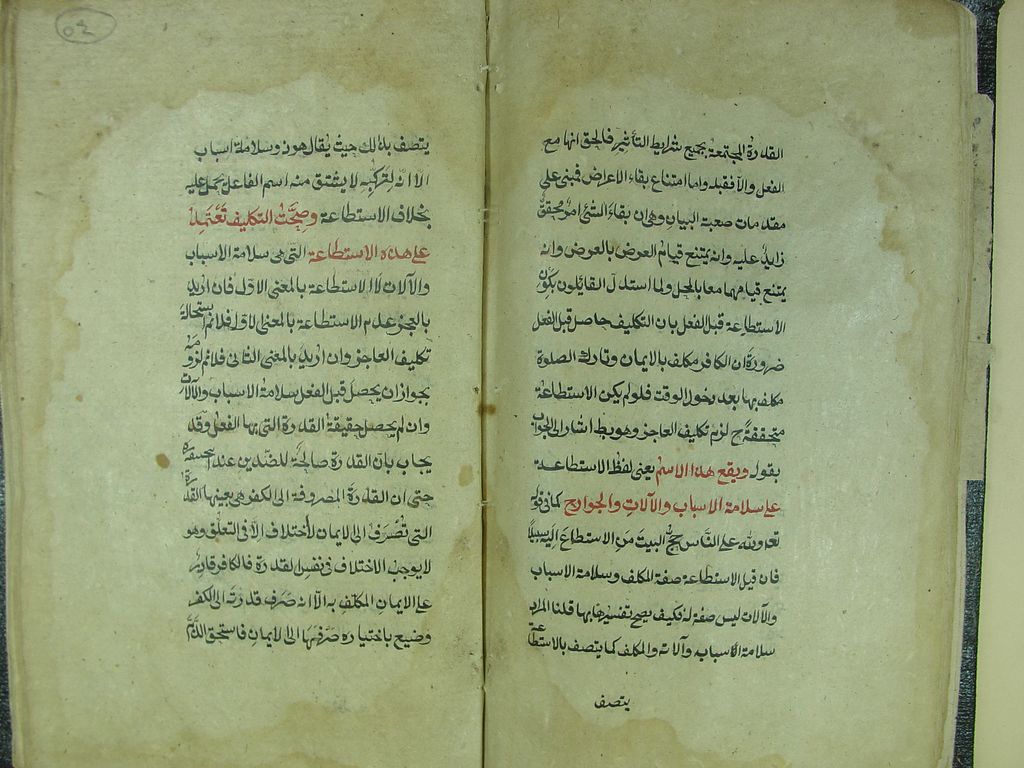 القدرة المجتمعة بجميع شرايط التأثير فالحق انها مع
الفعل والا فقبله واما امتناع بقاء الاعراض فمبنى على
مقدمات صعبة البيان وهى ان بقاء الشئ امر محقق
زايد عليه وانه يمتنع قيام العرض بالعرض وانه
يمتنع قيامهما معا بالمحل ولما استدل القائلون بكون
الاستطاعة قبل الفعل بان التكليف حاصل قبل الفعل
ضرورة ان الكافر مكلف بالايمان وتارك الصلوة
مكلف بها بعد دخول الوقت فلو لم يكن الاستطاعة
متحققة ح لزم تكليف العاجز وهو بط اشار الى الجواب
بقوله ويقع هذا الاسم يعنى لفظ الاستطاعة
على سلامة الاسباب والآلات والجوارح كما فى قوله
تعه ولله على النّاس حجّ البيت من الاستطاع اليه سبيلاً
فان قيل الاستطاعة صفة المكلف وسلامة الاسباب
والآلات ليس صفة له فكيف يصح تفسيرها بها قلنا المراد
سلامة الاسباب وآلاته والمكلف كما يتصف بالاستطاعة
يتصف
٥٤
يتصف بذلك حيث يقال هو ذو سلامة اسباب
الا انه لتركبه لا يشتق منه اسم الفاعل يحمل عليه
بخلاف الاستطاعة وصحّت التكليف تعتمد
على هذه الاستطاعة التى هى سلامة الاسباب
والآلات لا الاستطاعة بالمعنى الاوّل فان اريد
بالعجز عدم الاستطاعة بالمعنى الاوّل فلا نم استحالة
تكليف العاجز وان اريد بالمعنى الثانى فلا نم لزومه
بجواز ان يحصل قبل الفعل سلامة الاسباب والآلات
وان لم يحصل حقيقة القدرة التى بها الفعل وقد
يجاب بان القدرة صالحة للضدين عند ابيحنيفة
حتى ان القدرة المصروفة الى الكفر هى بعينها القدرة
التى تُصْرَف الى الايمان لا ختلاف الا فى التعلق وهو
لا يوجب الاختلاف فى نفس القدرة فالكافر قادر
على الايمان المكلف به الّا انه صَرَف قدرته الى الكفر
وضيع باختياره صَرْفَها الى الايمان فاستحق الذّمّ